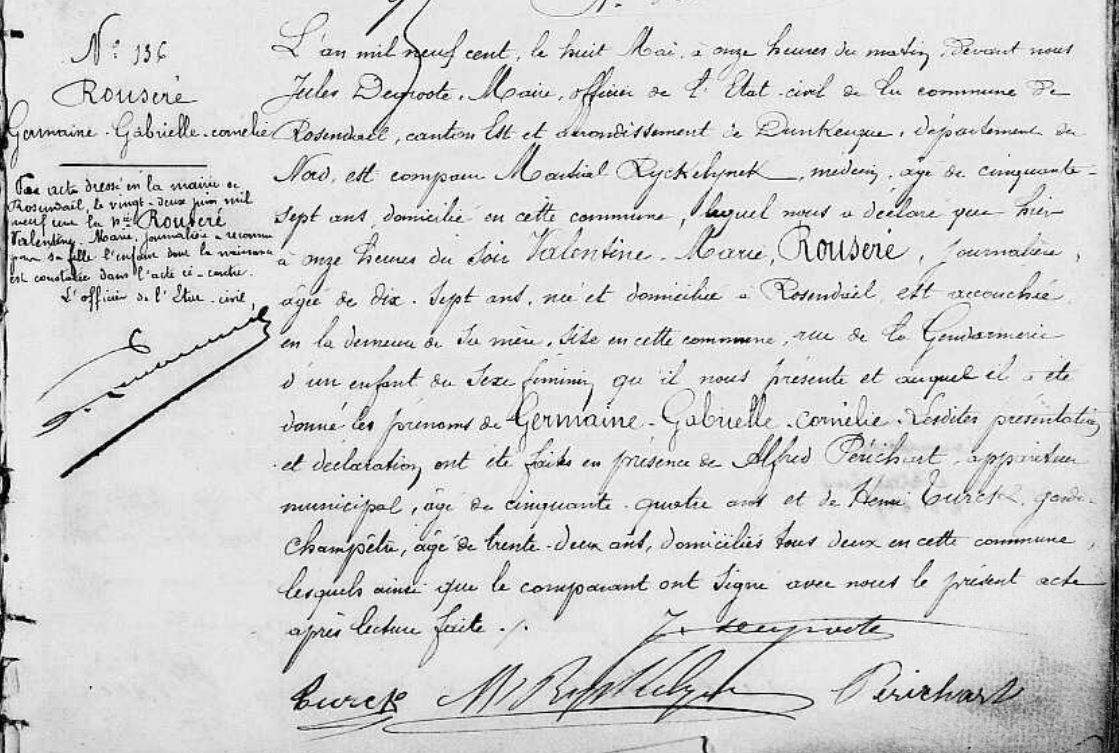 N° 136
Rouseré
Germaine-Gabrielle-cornélie
Par acte dressé en la mairie de
Rosendael, le vingt-deux juin mil
neuf cent la née Rouseré
Valentine-Marie, journalière a reconnu
pour sa fille l'enfant dont la naissance
est constatée dans l'acte ci-contre.
L'officier de l'Etat-civil,
L'an mil neuf cent, le huit Mai, à onze heures du matin, devant nous
Jules Deyroote, Maire, officier de l'Etat-civil de la commune de
Rosendael, canton Est et arrondissement de Dunkerque, département du
Nord, est comparu Martial Ryckelynck, médecin, âgé de cinquante-
sept ans, domicilié en cette commune, lequel nous a déclaré que hier
à onze heures du soir Valentine-Marie, Rouseré, journalière,
âgée de dix-sept ans, née et domiciliée à Rosendael, est accouchée
en la demeure de sa mère, sise en cette commune, rue de la Gendarmerie
d'un enfant du sexe féminin qu'il nous présente et auquel il a été
donné les prénoms de Germaine-Gabrielle-cornélie. Lesdites présentation
et déclaration ont été faites en présence de Alfred Périchart, appariteur
municipal, âgé de cinquante-quatre ans et de Henri Turck, garde-
champêtre, âgé de trente-deux ans, domiciliés tous deux en cette commune,
lesquels ainsi que le comparant ont signé avec nous le présent acte
après lecture faite ./.
J. Deyroote
Turck M Ryckelynck Périchart